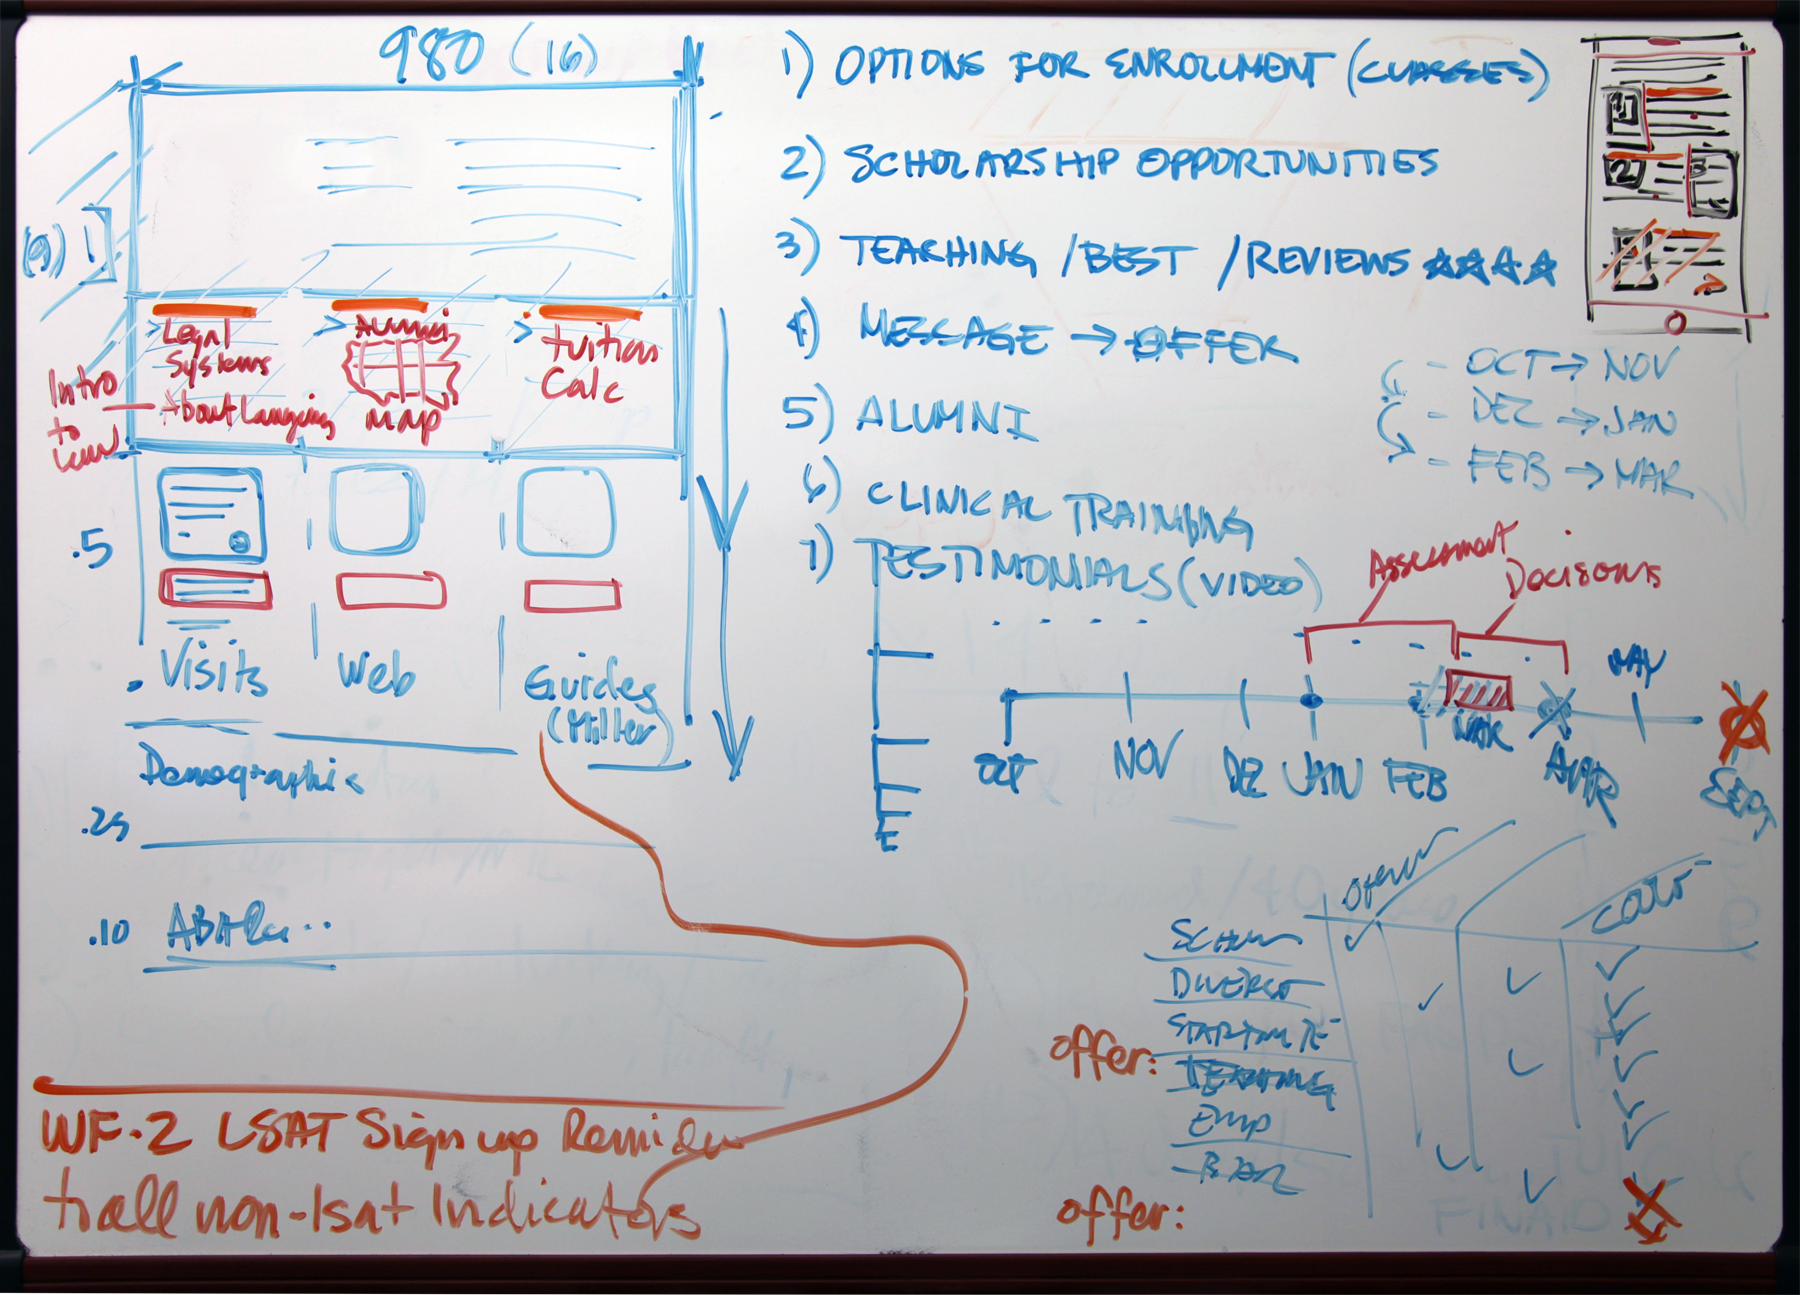 980 (16)
(9)
Legal
Systems
About Lawyering
Intro
to
Law
Alumni
map
tuition
Calc
.5
Visits
Web
Guides
(Miller)
Demographic
.25
.10
WF.2 LSAT Sign up Reminder
to all non-lsat Indicators
1) OPTIONS FOR ENROLLMENT (CLASSES)
2) SCHOLARSHIP OPPORTUNITIES
3) TEACHING / BEST / REVIEWS ☆☆☆☆
4) MESSAGE → OFFER
5) ALUMNI
6) CLINICAL TRAINING
7) TESTIMONIALS (VIDEO)
1
2
3
- OCT → NOV
- DEZ → JAN
- FEB → MAR
Assessment
Decisions
MAY
OCT
NOV
DEZ
JAN
FEB
MAR
APR
SEPT
offer
DIVERSE
offer:
TEACHING
EMP
BAR
offer:
FINAID